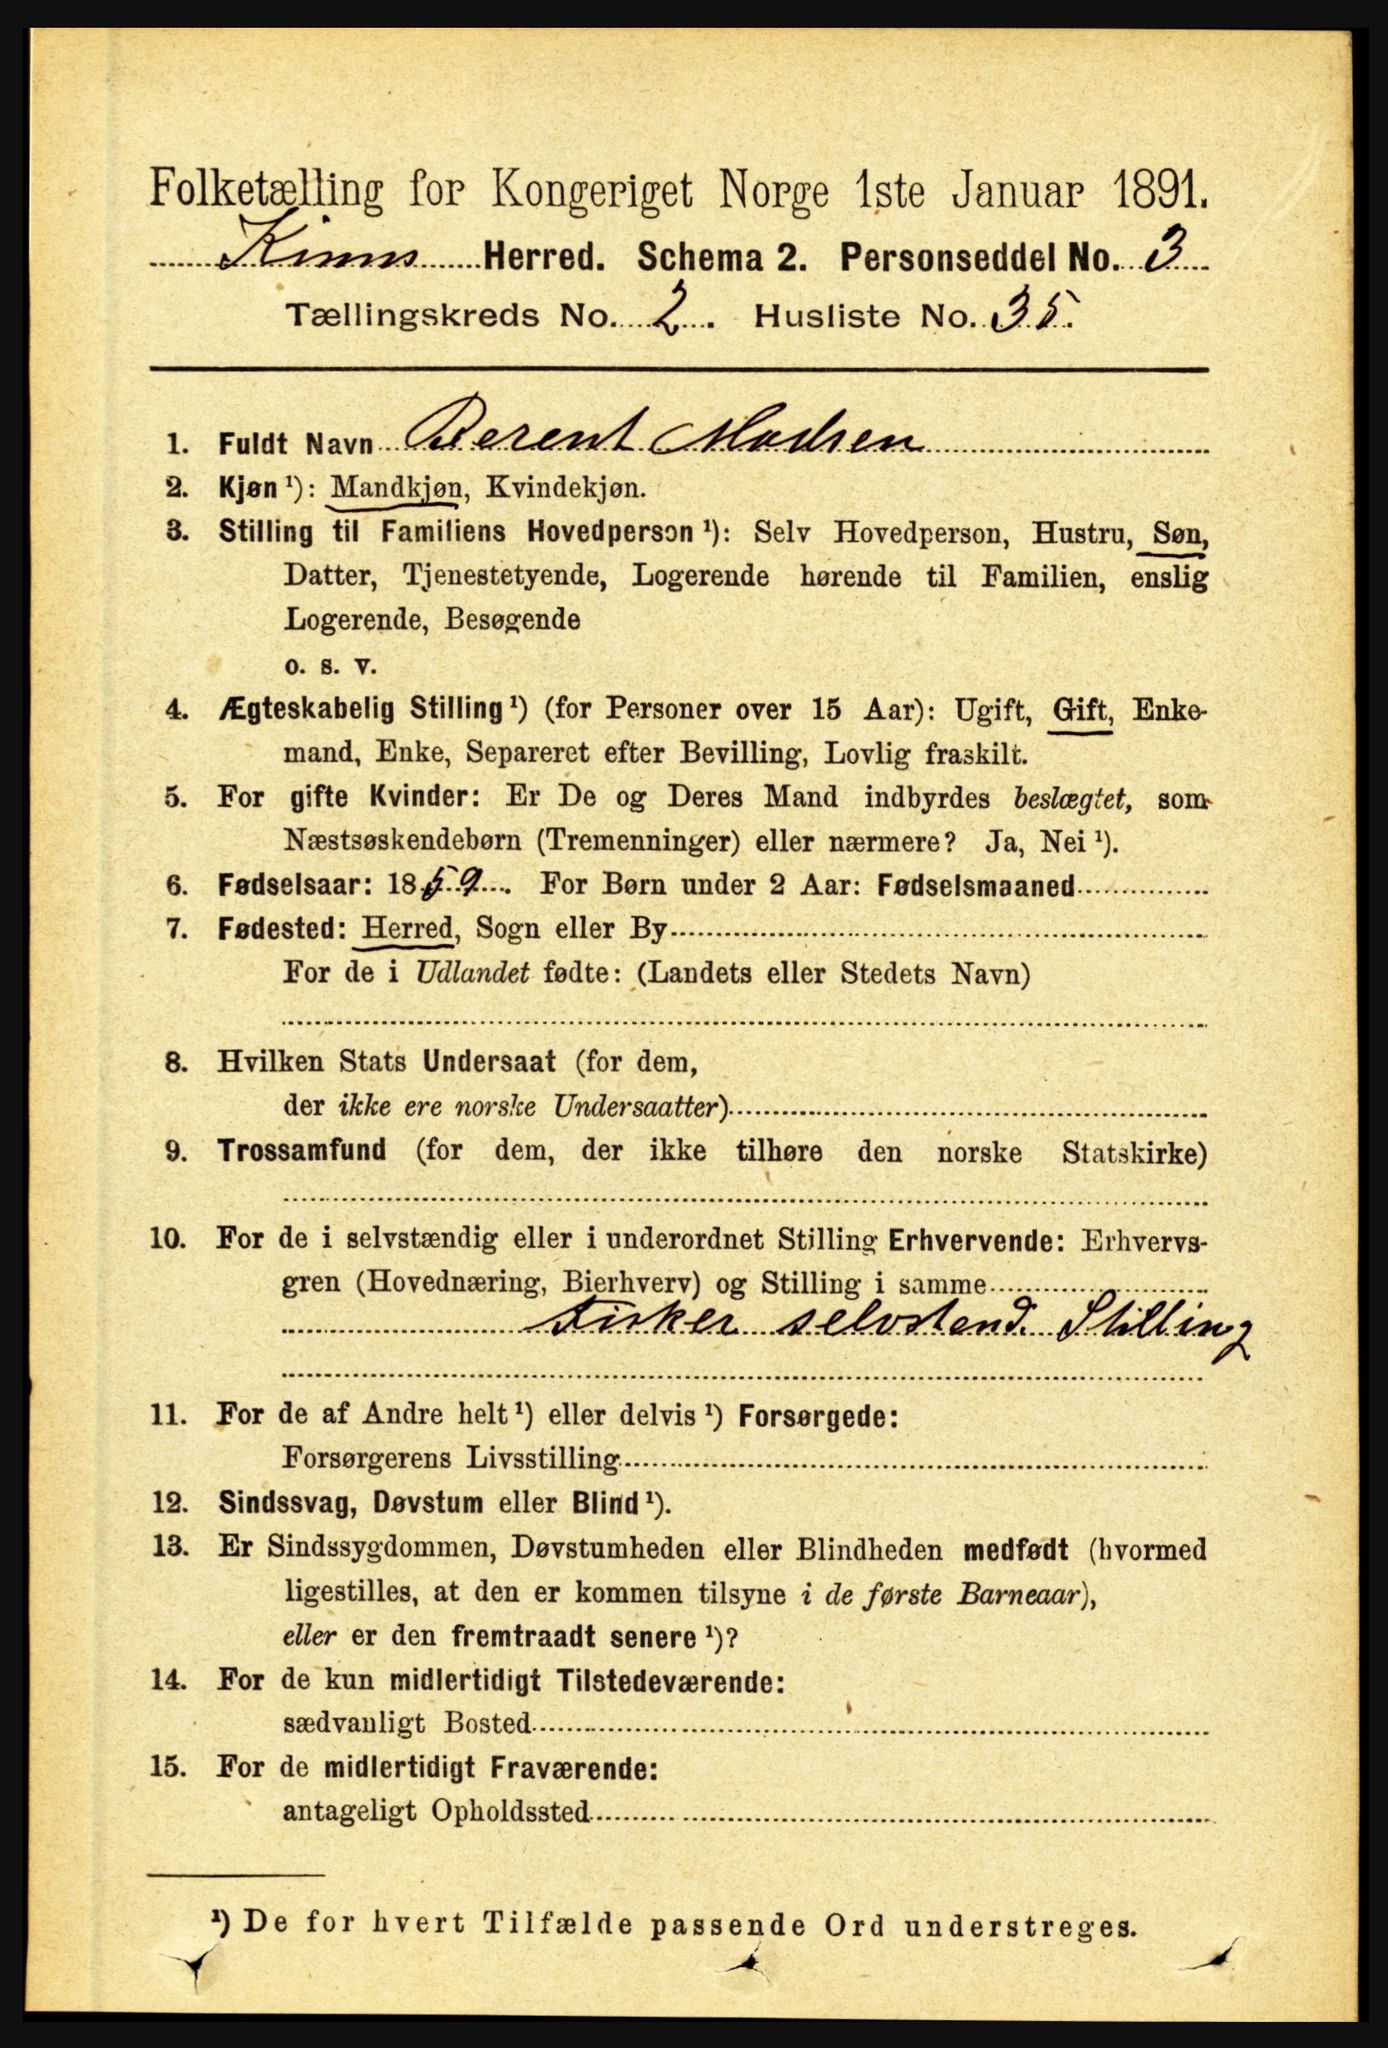 Folketælling for Kongeriget Norge 1ste Januar 1891.
Kinns Herred. Schema 2. Personseddel No. 3
Tællingskreds No. 2. Husliste No. 35.
1. Fuldt Navn Berent Madsen
2. Kjøn ¹): Mandkjøn, Kvindekjøn.
3. Stilling til Familiens Hovedperson ¹): Selv Hovedperson, Hustru, Søn,
Datter, Tjenestetyende, Logerende hørende til Familien, enslig
Logerende, Besøgende
o. s. v.
4. Ægteskabelig Stilling ¹) (for Personer over 15 Aar): Ugift, Gift, Enke-
mand, Enke, Separeret efter Bevilling, Lovlig fraskilt.
5. For gifte Kvinder: Er De og Deres Mand indbyrdes beslægtet, som
Næstsøskendebørn (Tremenninger) eller nærmere? Ja, Nei ¹).
6. Fødselsaar: 1859. For Børn under 2 Aar: Fødselsmaaned
7. Fødested: Herred, Sogn eller By
For de i Udlandet fødte: (Landets eller Stedets Navn)
8. Hvilken Stats Undersaat (for dem,
der ikke ere norske Undersaatter)
9. Trossamfund (for dem, der ikke tilhøre den norske Statskirke)
10. For de i selvstændig eller i underordnet Stilling Erhvervende: Erhvervs-
gren (Hovednæring, Bierhverv) og Stilling i samme
Fisker selvstend. Stilling
11. For de af Andre helt ¹) eller delvis ¹) Forsørgede:
Forsørgerens Livsstilling
12. Sindssvag, Døvstum eller Blind ¹).
13. Er Sindssygdommen, Døvstumheden eller Blindheden medfødt (hvormed
ligestilles, at den er kommen tilsyne i de første Barneaar),
eller er den fremtraadt senere ¹)?
14. For de kun midlertidigt Tilstedeværende:
sædvanligt Bosted
15. For de midlertidigt Fraværende:
antageligt Opholdssted
¹) De for hvert Tilfælde passende Ord understreges.